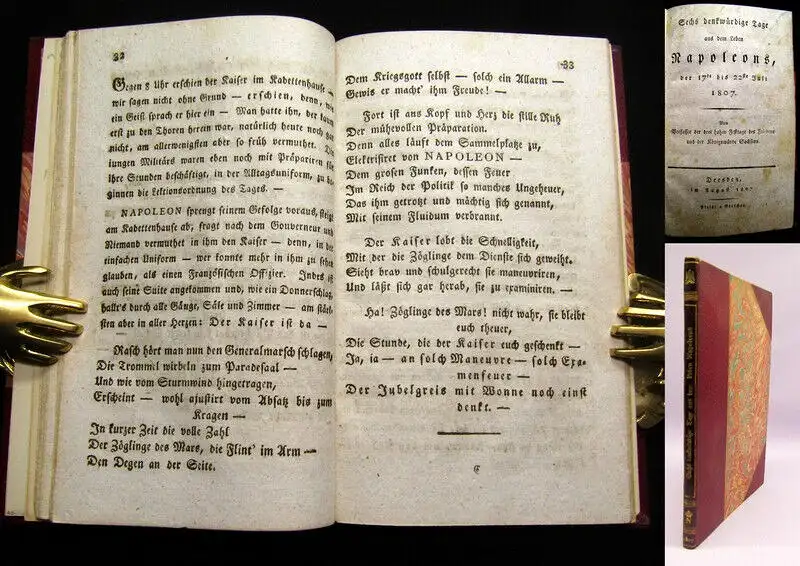 32
Gegen 8 Uhr erschien der Kaiser im Kadettenhause —
wir sagen nicht ohne Grund — erschien, denn, wie
ein Geist sprach er hier ein — Man hatte ihn, der kaum
erst zu den Thoren herein war, natürlich heute noch gar
nicht, am allerwenigsten aber so früh vermuthet. Die
jungen Militärs waren eben noch mit Präpariren für
ihre Stunden beschäftigt, in der Alltagsuniform, zu be-
ginnen die Lektionsordnung des Tages. —
NAPOLEON sprengt seinem Gefolge voraus, steigt
am Kadettenhause ab, fragt nach dem Gouverneur und
Niemand vermuthet in ihm den Kaiser — denn, in der
einfachen Uniform — wer konnte mehr in ihm zu sehen
glauben, als einen Französischen Offizier. Indeß ist
auch seine Suite angekommen und, wie ein Donnerschlag,
hallt's durch alle Gänge, Säle und Zimmer — am stärk-
sten aber in aller Herzen: Der Kaiser ist da —
Rasch hört man nun den Generalmarsch schlagen,
Die Trommel wirbeln zum Paradesaal —
Und wie vom Sturmwind hingetragen,
Erscheint — wohl ajustirt vom Absatz bis zum
Kragen —
In kurzer Zeit die volle Zahl
Der Zöglinge des Mars, die Flint' im Arm —
Den Degen an der Seite.
33
Dem Kriegsgott selbst — solch ein Allarm —
Gewis er macht' ihm Freude! —
Fort ist aus Kopf und Herz die stille Ruh
Der mühevollen Präparation.
Denn alles läuft dem Sammelplatze zu,
Elektrisiret von NAPOLEON —
Dem großen Funken, dessen Feuer
Im Reich der Politik so manches Ungeheuer,
Das ihm getrotzt und mächtig sich genannt,
Mit seinem Fluidum verbrannt.
Der Kaiser lobt die Schnelligkeit,
Mit der die Zöglinge dem Dienste sich geweiht.
Sieht brav und schulgerecht sie maneuvriren,
Und läßt sich gar herab, sie zu examiniren. —
Ha! Zöglinge des Mars! nicht wahr, sie bleibt
euch theuer,
Die Stunde, die der Kaiser euch geschenkt —
Ja, ja — an solch Maneuvre — solch Exa-
menfeuer —
Der Jubelgreis mit Wonne noch einst
denkt. —
C
Sechs denkwürdige Tage
aus dem Leben
Napoleons,
der 17te bis 22ste Juli
1807.
Von
Verfasser der drei hohen Festtage des Friedens
und der Königswürde Sachsens.
Dresden,
im August 1807
Sechs denkwürdige Tage aus dem Leben Napoleons
N